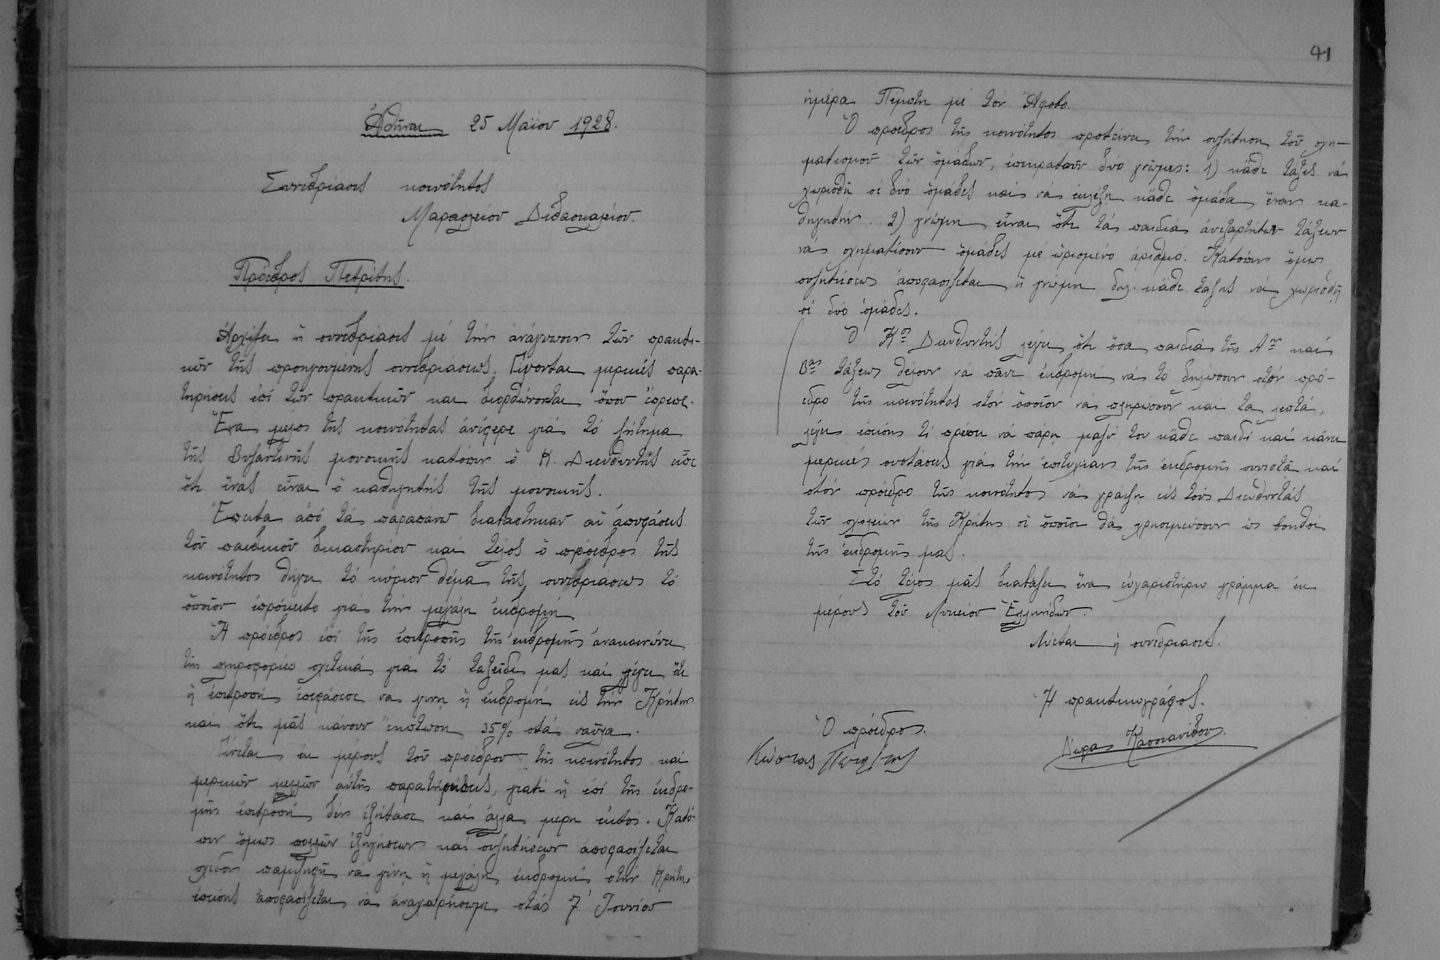 Ἀθῆναι 25 Μαΐου 1928.
Συνεδρίασις κοινότητος
Μαρασλείου Διδασκαλείου.
Πρόεδρος Πετρίτης.
Ἀρχίζει ἡ συνεδρίασις μέ τήν ἀνάγνωσιν τῶν πρακτι-
κῶν τῆς προηγουμένης συνεδριάσεως. Γίνονται μερικές παρα-
τηρήσεις ἐπί τῶν πρακτικῶν και διορθώνονται ὅπου ἔπρεπε.
Ἕνα μέλος τῆς κοινότητας ἀνέφερε γιά τό ζήτημα
τῆς Βυζαντινῆς μουσικῆς κατόπιν ὁ Κ. Διευθυντής εἶπε
ὅτι ἕνας εἶναι ὁ καθηγητής τῆς μουσικῆς.
Ἔπειτα ἀπό τά παραπάνω διαβάστηκαν αἱ ἀποφάσεις
τοῦ παιδικοῦ δικαστηρίου καί τέλος ὁ πρόεδρος τῆς
κοινότητος θίγει τό κύριον θέμα τῆς συνεδριάσεως τό
ὁποῖον ἐπρόκειτο γιά τήν μεγάλη ἐκδρομή.
Ἡ πρόεδρος ἐπί τῆς ἐπιτροπῆς τῆς ἐκδρομῆς ἀνακοινώνει
τίς πληροφορίες σχετικά γιά τό ταξεῖδι μας καί λέγει ὅτι
ἡ ἐπιτροπή ἀπεφάσισε να γίνη ἡ ἐκδρομή εἰς τήν Κρήτην
και ὅτι μᾶς κάνουν ἔκπτωση 35% στά ναῦλα.
Γίνεται ἐκ μέρους τοῦ προέδρου τῆς κοινότητος καί
μερικῶν μελῶν αὐτῆς παρατηρήσεις, γιατί ἡ ἐπί τῆς ἐκδρο-
μῆς ἐπιτροπή δέν ἐξήτασε καί ἄλλα μέρη ἐκτός. Κατό-
πιν ὅμως πολλῶν ἐξηγήσεων καί συζητήσεων ἀποφασίζεται
σχεδόν παμψηφεί να γίνῃ ἡ μεγάλη ἐκδρομή στήν Κρήτη
ἐπίσης ἀποφασίζεται νά ἀναχωρήσωμε στάς 7 Ἰουνίου
41
ἡμέρα Πέμπτη μέ τόν
Ὁ πρόεδρος τῆς κοινότητος προτείνει τήν συζήτηση τοῦ σχη-
ματισμοῦ τῶν ὁμάδων, ἐπικρατοῦν δύο γνῶμες: 1) κάθε τάξις νά
χωρισθῆ σέ δύο ὁμάδες καί νά ἐκλέξη κάθε ὁμάδα ἕναν κα-
θηγητήν. 2) γνώμη εἶναι ὅτι τά παιδιά ἀνεξαρτήτων τάξεων
νά σχηματίσουν ὁμάδες μέ ὡρισμένο ἀριθμό. Κατόπιν ὅμως
συζητήσεως ἀποφασίζεται ἡ γνώμη δηλ. κάθε τάξις νά χωρισθῇ
σέ δύο ὁμάδες.
Ὁ Κος Διευθυντής λέγει ὅτι ὅσα παιδιά τῆς Αης καί
Βας τάξεως θέλουν να πᾶνε ἐκδρομή νά τό δηλώσουν στόν πρό-
εδρο τῆς κοινότητος στόν ὁποῖον νά πληρώσουν καί τα λεφτά,
λέγει ἐπίσης τί πρέπει νά πάρη μαζύ του κάθε παιδί καί κάνει
μερικές συστάσεις γιά τήν ἐπιτυχίαν τῆς ἐκδρομῆς συνιστᾶ καί
στόν πρόεδρο τῆς κοινότητος νά γράψη εἰς τούς Διευθυντάς
τῶν σχολείων τῆς Κρήτης οἱ ὁποῖοι θά χρησιμεύσουν ὡς βοηθοί
τῆς ἐκδρομῆς μας.
Στό τέλος μᾶς διαβάζει ἕνα εὐχαριστήριο γράμμα ἐκ
μέρους τοῦ Λυκείου Ἑλληνίδων.
Λύεται ἡ συνεδρίασις.
Ἡ πρακτικογράφος.
Ὁ πρόεδρος.
Δώρα Κασσιανίδου
Κώστας Πετρίτης